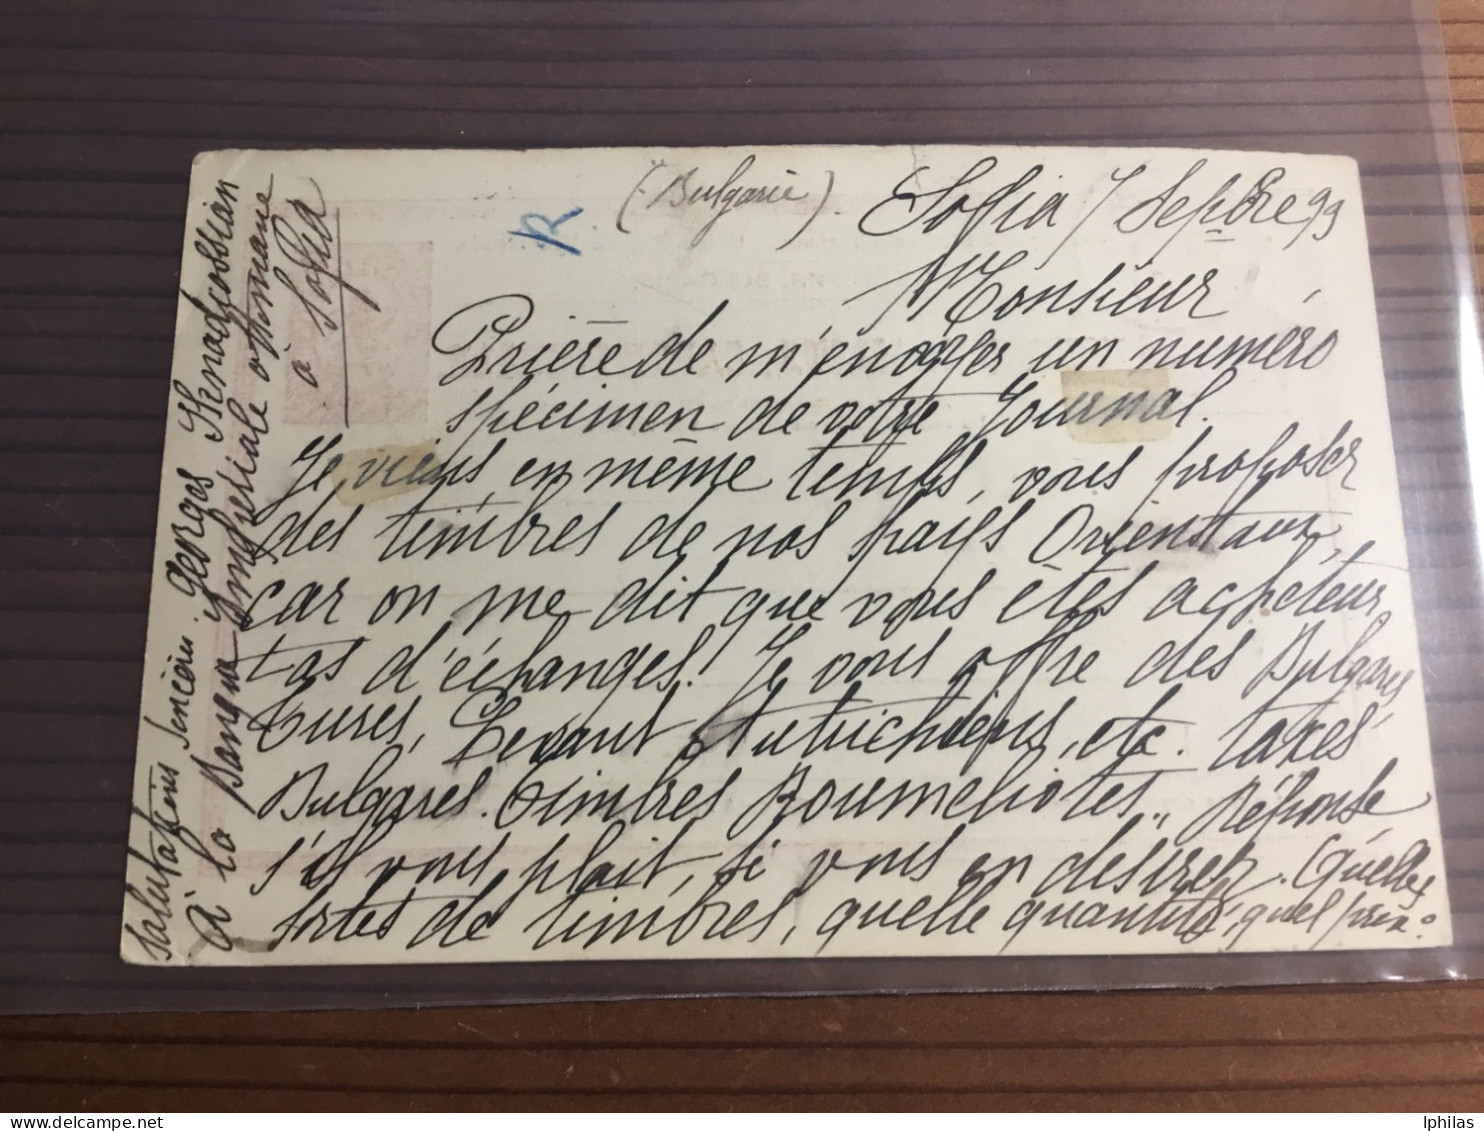 (Bulgarie)
Sofia 7 Sepbre 99
R
Monsieur
Prière de m'envoyer un numéro
spécimen de votre Journal.
Je viens, en même temps, vous proposer
des timbres de nos pays Orientaux,
car on me dit que vous êtes acheteur
pas d'échanges! Je vous offre des Bulgares
Turcs, Levant Autrichiens, etc. taxes
Bulgares. Timbres Roumeliotes,, Réponse
s'il vous plait, si vous en desirez. Quelles
sortes de timbres, quelle quantité, quel prix.
Salutations Sincères. Georges
à la Banque Impériale ottomane
à Sofia
lphilas